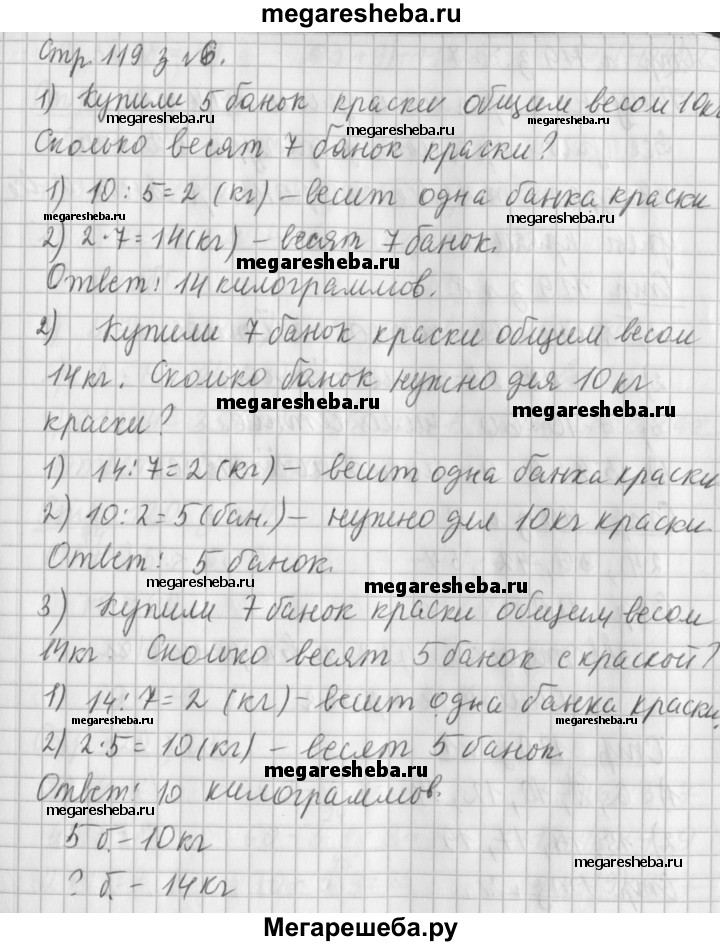 megaresheba.ru
Стр. 119 з №6.
1) Купили 5 банок краски общим весом 10кг
megaresheba.ru megaresheba.ru
Сколько весят 7 банок краски?
1) 10 : 5 = 2 (кг) – весит одна банка краски
megaresheba.ru megaresheba.ru
2) 2·7 = 14(кг) – весят 7 банок.
megaresheba.ru
Ответ: 14 килограммов.
2) Купили 7 банок краски общим весом
14кг. Сколько банок нужно для 10кг
megaresheba.ru megaresheba.ru
краски?
1) 14:7=2(кг) – весит одна банка краски
2) 10:2=5(бан.) – нужно для 10кг краски.
Ответ: 5 банок.
megaresheba.ru megaresheba.ru
3) Купили 7 банок краски общим весом
14кг. Сколько весят 5 банок с краской?
1) 14:7=2 (кг) – весит одна банка краски.
megaresheba.ru megaresheba.ru
2) 2·5 = 10(кг) – весят 5 банок.
megaresheba.ru
Ответ: 10 килограммов.
megaresheba.ru
5 б. – 10кг
megaresheba.ru
? б. – 14кг
Мегарешеба.ру